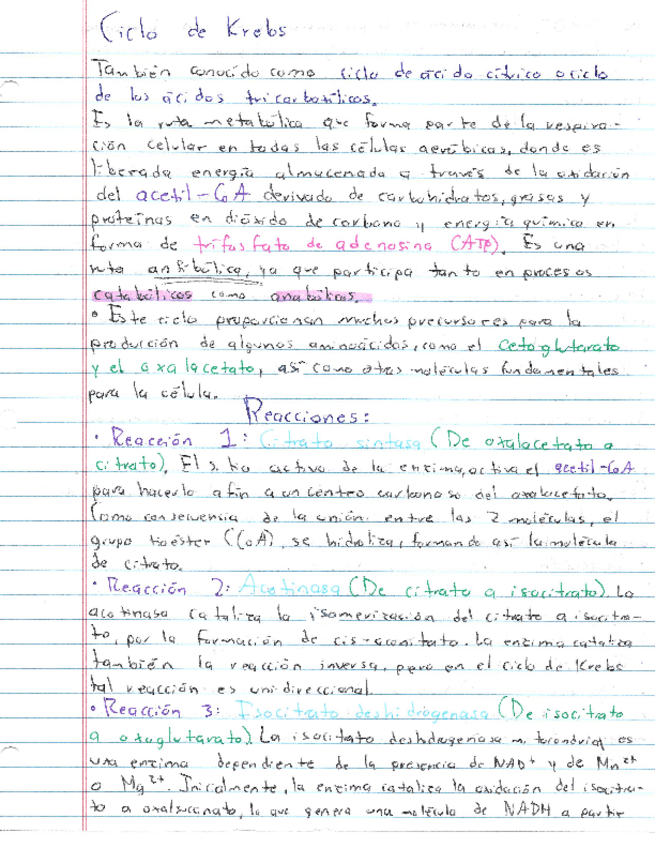 Ciclo de Krebs
También conocido como ciclo de ácido cítrico o ciclo
de los ácidos tricarboxílicos.
Es la ruta metabólica que forma parte de la respira-
ción celular en todas las células aeróbicas, donde es
liberada energía almacenada a través de la oxidación
del acetil-CoA derivado de carbohidratos, grasas y
proteínas en dióxido de carbono y energía química en
forma de trifosfato de adenosina (ATP). Es una
ruta anfibólica, ya que participa tanto en procesos
catabólicos como anabólicos.
• Este ciclo proporcionan muchos precursores para la
producción de algunos aminoácidos, como el Cetoglutarato
y el oxalacetato, así como otras moléculas fundamentales
para la célula.
Reacciones:
• Reacción 1: Citrato sintasa (De oxalacetato a
citrato). El sitio activo de la enzima, activa el acetil-CoA
para hacerlo afín a un centro carbonoso del oxalacetato.
Como consecuencia de la unión entre las 2 moléculas, el
grupo tioéster (CoA), se hidroliza, formando así la molécula
de citrato.
• Reacción 2: Acotinasa (De citrato a isocitrato). La
acotinasa cataliza la isomerización del citrato a isocitra-
to, por la formación de cis-aconitato. La enzima cataliza
también la reacción inversa, pero en el ciclo de Krebs
tal reacción es unidireccional.
• Reacción 3: Isocitrato deshidrogenasa (De isocitrato
a oxoglutarato). La isocitrato deshidrogenasa mitocondrial es
una enzima dependiente de la presencia de NAD+ y de Mn2+
o Mg2+. Inicialmente, la enzima cataliza la oxidación del isocitra-
to a oxalsuccinato, lo que genera una molécula de NADH a partir